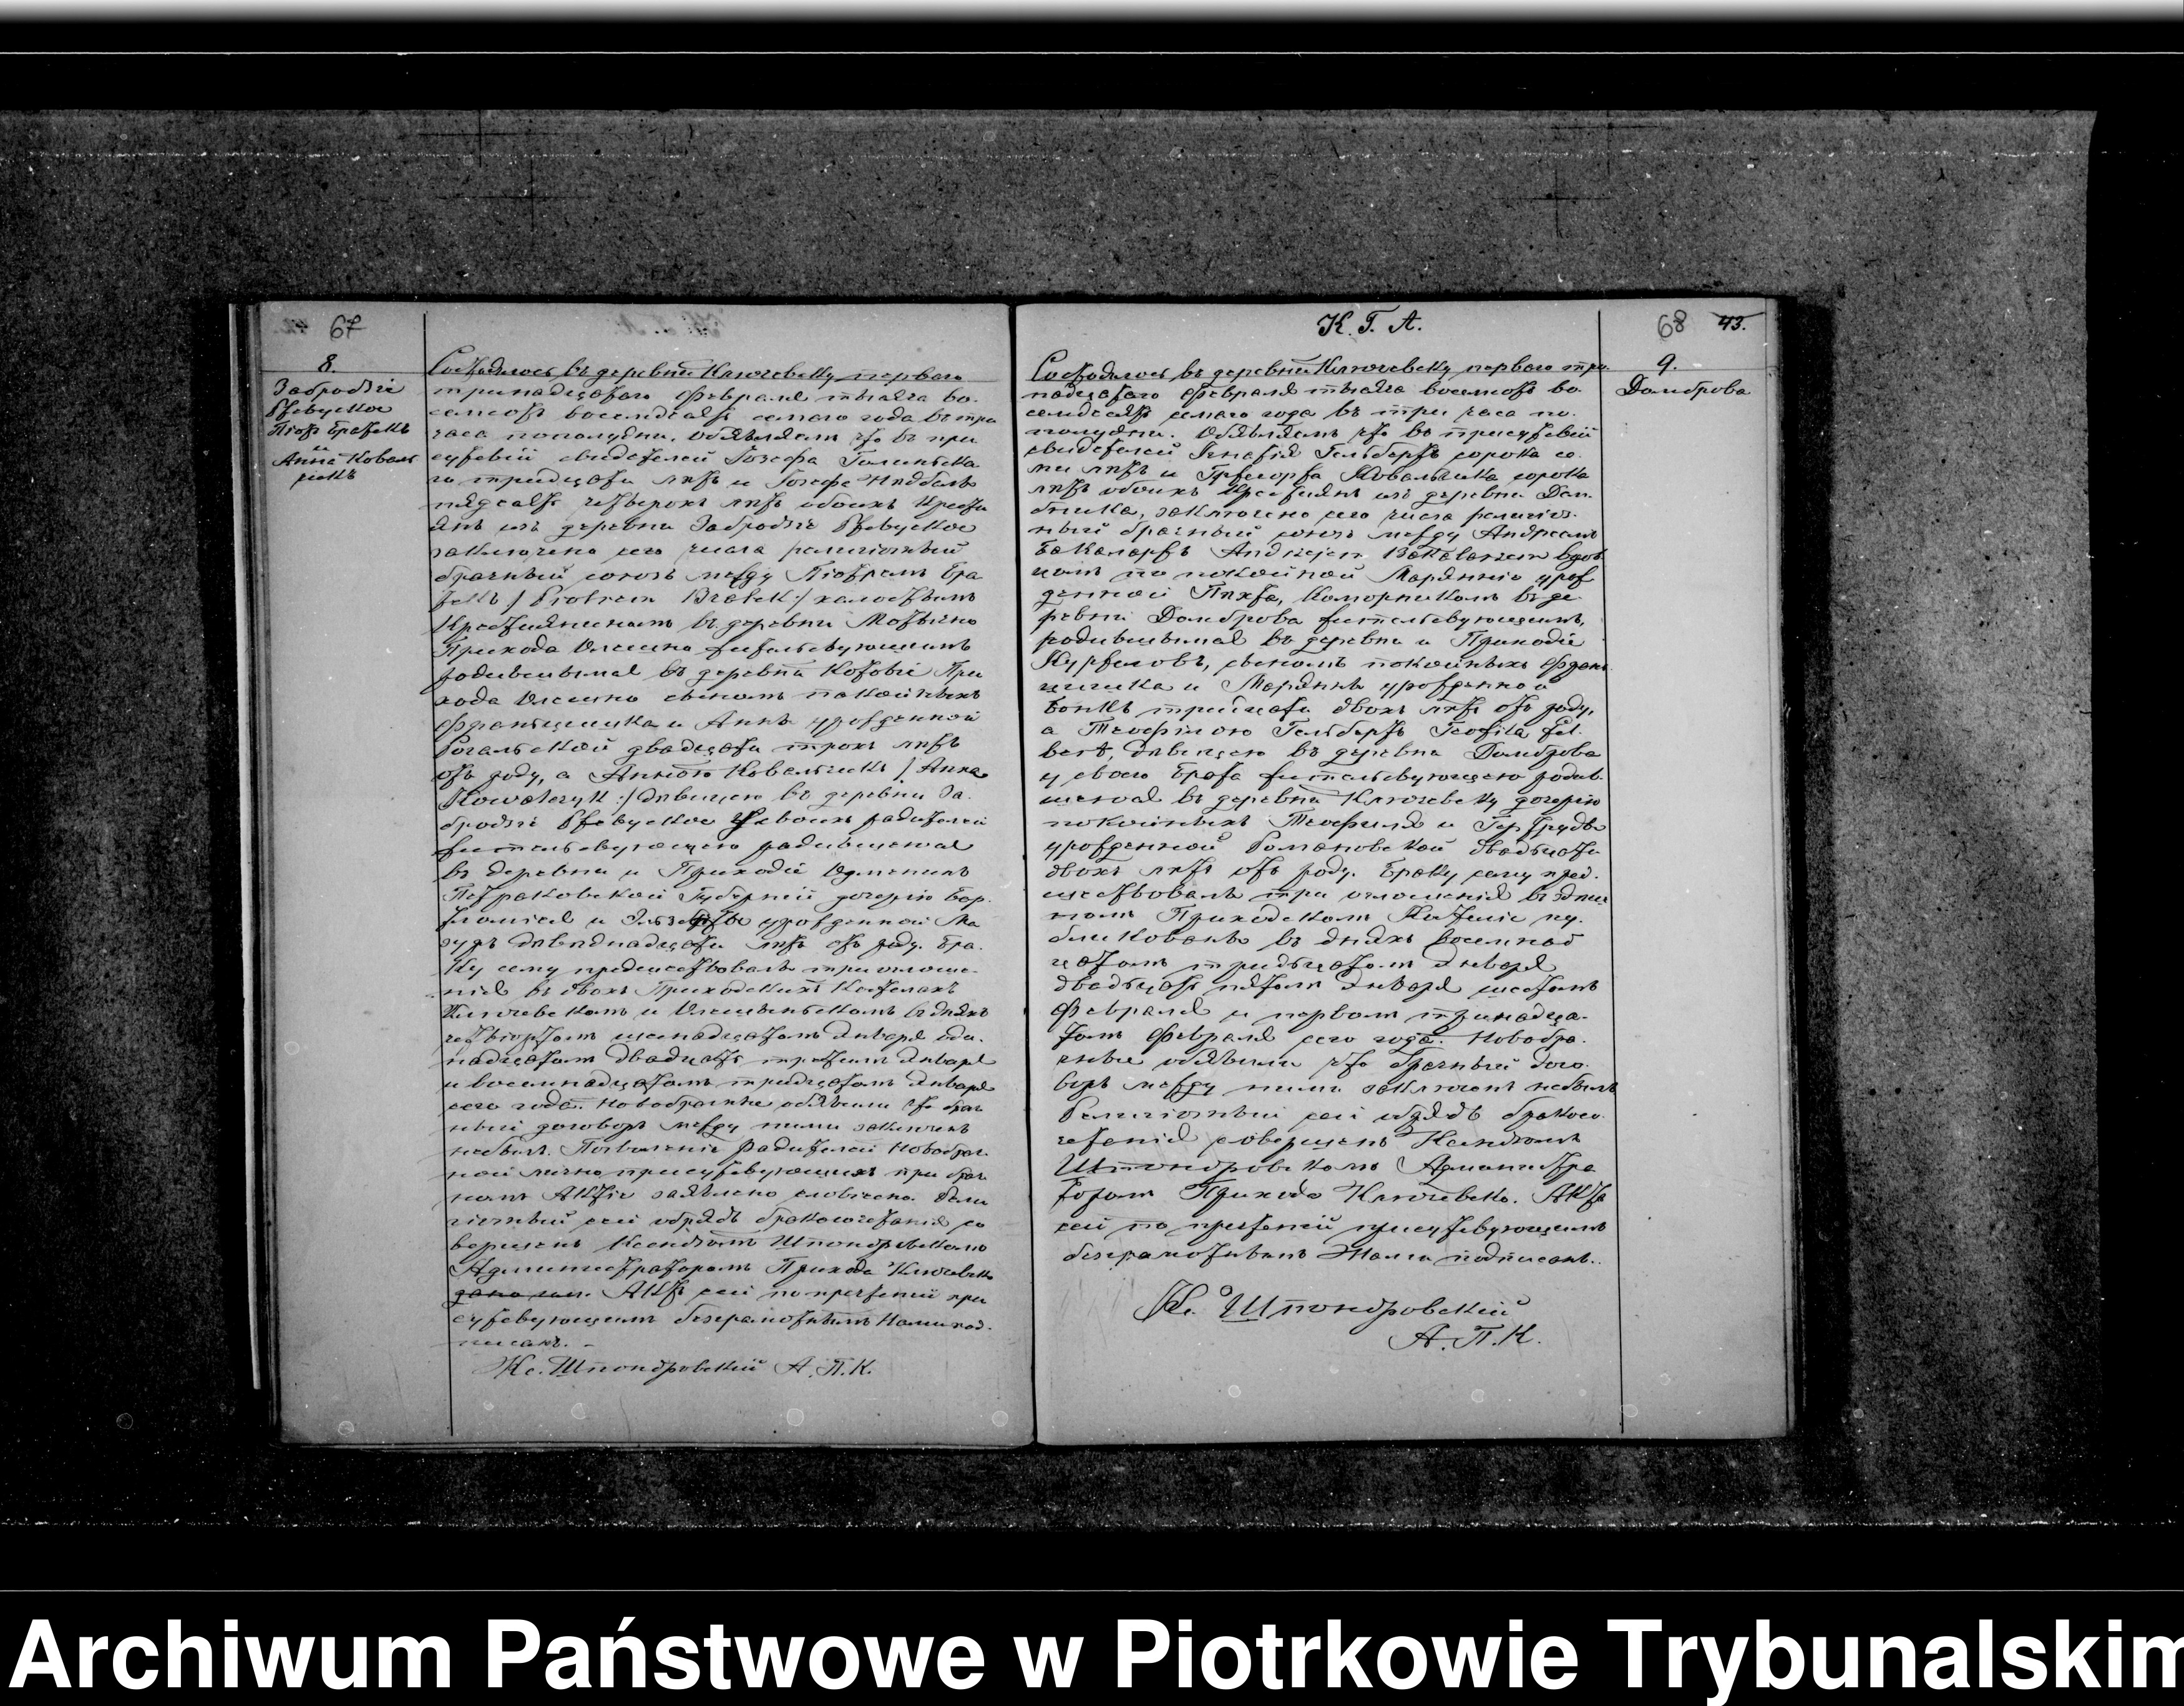 67
8.
Забродзе
Ржевуское
Піотръ Братекъ
и
Анна Коваль
чикъ
Состоялось въ деревни Ключевску перваго
тринадцатаго Февраля тысяча во
семсотъ восемдесятъ семаго года въ три
часа пополудни. Объявляем что въ при
сутствіи свидетелей Іозефа
тридцати лѣтъ и Іозефа
пядесятъ четырохъ лѣтъ обоихъ Крестья
янъ изъ деревни Забродзе Ржевуское
заключено сего числа религіозный
брачный союзъ между Піотрем Бра
текъ / Piotrem Bratek :/ холостымъ
Крестьяниномъ въ деревни
Прихода жительствующимъ
родившымся въ деревни При
хода сыномъ покойныхъ
Францишка и Анны урожденной
Рогальской двадцати трохъ лѣтъ
отъ роду, а Анною Ковальчикъ / Anna
Kowalczyk :/ дѣвицею въ деревни За
бродзе Ржевуское у своихъ родителей
жительствующею родившеюся
въ деревни и Приходѣ
Петроковской Губерніи дочерію Бар
толомея и урожденной Ма
зуръ отъ роду. Бра
ку сему предшествовали три оглаше
нія въ двохъ Приходскихъ Костелахъ
Ключевскомъ и въ дняхъ
четвіортом шеснадцатом Января оди
надцатом двадцать третьем Января
и восемнадцатомъ тридцатомъ Января
сего года. Новобрачные объявили что брач
ный договоръ между ними заключенъ
небылъ. Позволеніе Родителей Новобрач
ной лично присутствующихъ при брач
номъ Актѣ заявлено словесно. Рели
гіозный сей обрядъ бракосочетанія со
вершенъ Ксендзомъ Шпондровскимъ
Администраторомъ Прихода Ключевско
Актъ сей по прочтеніи при
сутствующимъ безграмотнымъ Нами под
писанъ. -
Кс. Шпондровскій А. П. К.
К. Г. А.
68 43.
9.
Домброва
Состоялось въ деревни Ключевску перваго три
надцатаго Февраля тысяча восемсотъ во
семдесятъ семаго года въ три часа по
полудни. Объявляемъ что въ присутствіи
свидетелей Игнатія Гельбертъ сорока се
ми лѣтъ и Гржегоржа Ковальчика сорока
лѣтъ обоихъ Крестьянъ изъ деревни Дом
заключено сего числа религіоз
ный брачный союзъ между Андреемъ
Бакаларжъ Andrzejem Bakalarzem вдов
цомъ по покойной Маріаннѣ урож
денной Коморникомъ въ де
ревни Домброва жительствующимъ,
родившымся въ деревни и Приходѣ
сыномъ покойныхъ Фран
цишка и Маріанны урожденной
тридцати двохъ лѣтъ отъ роду,
а Теофилою Гельбертъ Teofila Gel
bert, дѣвицею въ деревни Домброва
у своего Брата жительствующею родив
шеюся въ деревни Ключевску дочерію
покойныхъ Теофиля и Гертруды
урожденной Романовской двадцати
двохъ лѣтъ отъ роду. Браку сему пред
шествовали три оглашенія въ здеш
номъ Приходскомъ Костелѣ пу
бликованы въ дняхъ восемнад
цатомъ тридцатом Января
двадцать пятом Января шестомъ
Февраля и первом тринадца
том Февраля сего года. Новобра
чные объявили что Брачный дого
воръ между ними заключенъ небылъ
Религіозный сей обрядъ бракосо
четанія совершенъ Ксендзомъ
Шпондровскимъ Администра
торомъ Прихода Ключевско. Актъ
сей по прочтеніи присутствующимъ
безграмотнымъ Нами подписанъ..
Кс. Шпондровскій
А. П. К.
Archiwum Państwowe w Piotrkowie Trybunalskim